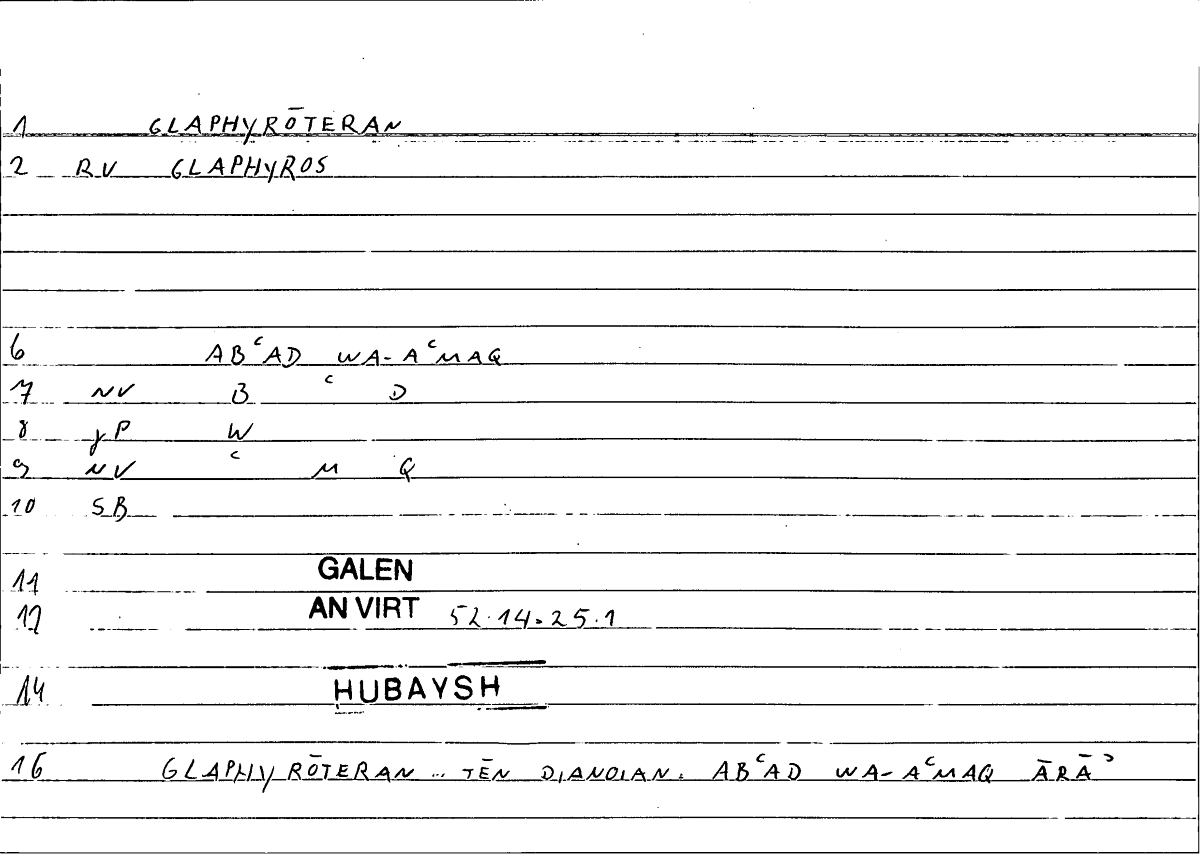 1 GLAPHYRŌTERAN
2 RV GLAPHYROS
6 ABʿAD WA-AʿMAQ
7 NV B ʿ D
8 jP W
9 NV ʿ M Q
10 SB
11 GALEN
12 AN VIRT 52.14-25.1
14 HUBAYSH
16 GLAPHYRŌTERAN … TĒN DIANOIAN: ABʿAD WA-AʿMAQ ĀRĀʾ